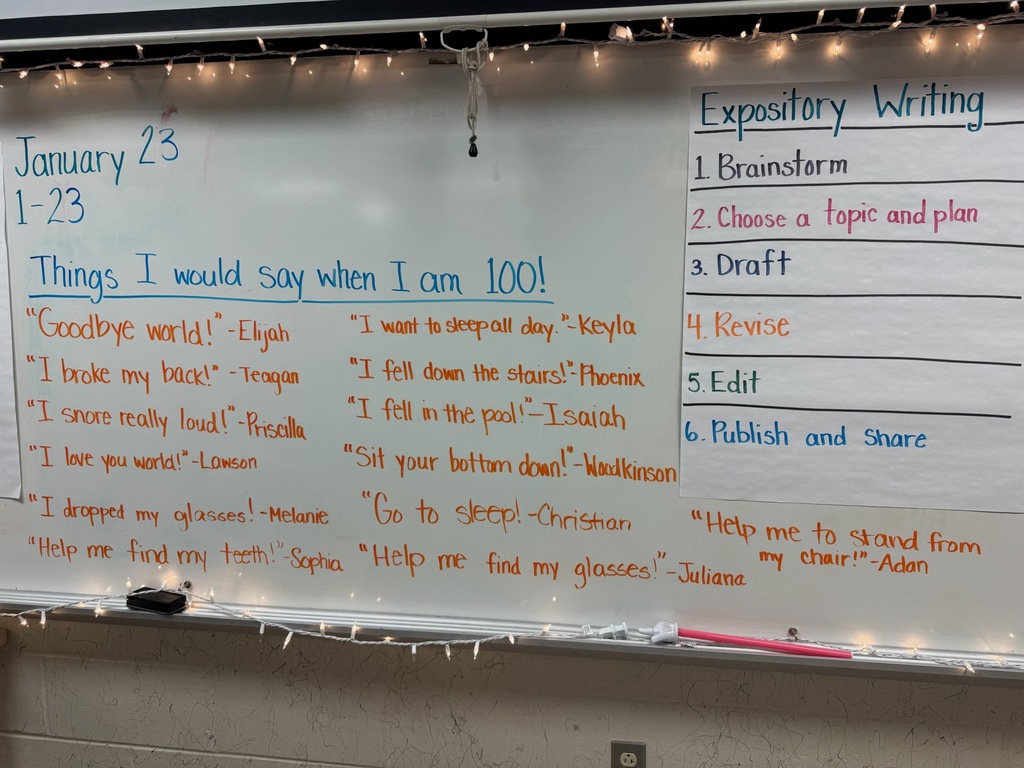 January 23
1-23
Things I would say when I am 100!
"Goodbye world!" -Elijah
"I broke my back!" -Teagan
"I snore really loud!" -Priscilla
"I love you world!" -Lawson
"I dropped my glasses! -Melanie
"Help me find my teeth!" -Sophia
"I want to sleep all day." -Keyla
"I fell down the stairs!" -Phoenix
"I fell in the pool!" -Isaiah
"Sit your bottom down!" -Woodkinson
"Go to sleep! -Christian
"Help me find my glasses!" -Juliana
"Help me to stand from
my chair!" -Adan
Expository Writing
1. Brainstorm
2. Choose a topic and plan
3. Draft
4. Revise
5. Edit
6. Publish and share